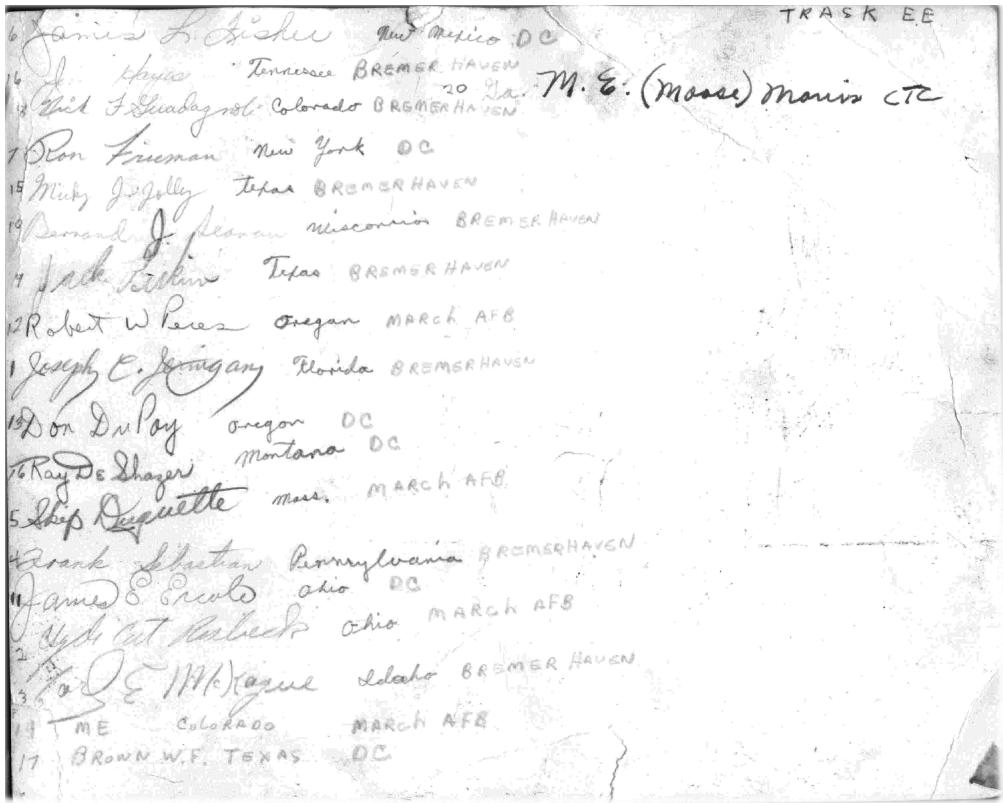 TRASK EE
6 James L. Fisher New Mexico DC
16 J. Hayes Tennessee BREMER HAVEN
20 Ga. M. E. (Moose) Morris CTC
Nick F Guadagnoli Colorado BREMERHAVEN
7 Ron Freeman New York DC
15 Micky J. Jolly Texas BREMERHAVEN
19 Bernard J. Texas Wisconsin BREMERHAVEN
9 Jack Texas BREMERHAVEN
12 Robert W Peres Oregon MARCH AFB
1 Joseph C. Jernigan Florida BREMERHAVEN
13 Don DuPay oregon DC
Ray De Shazer montana DC
5 Skip Duquette mass. MARCH AFB
4 Frank Sebastian Pennsylvania BREMERHAVEN
11 James E Ercole Ohio DC
2 Clyde Art Ohio MARCH AFB
3 E McKague Idaho BREMER HAVEN
ME COLORADO MARCH AFB
17 BROWN W.F. TEXAS DC